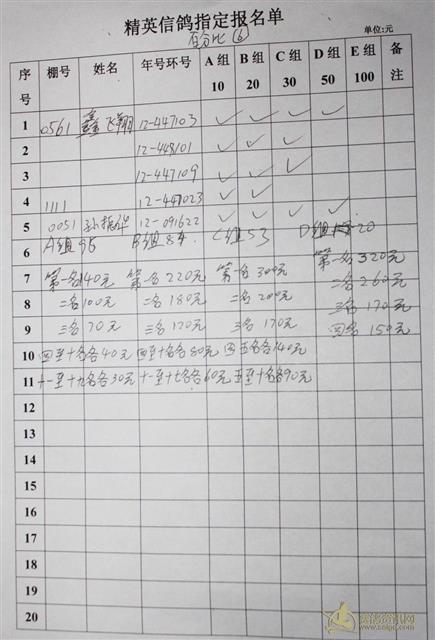 精英信鸽指定报名单
百分比 ⑥
单位:元
序号 棚号 姓名 年号环号 A组10 B组20 C组30 D组50 E组100 备注
1 0561 鑫飞翔 12-447103 ✓ ✓ ✓ ✓
2 12-448101 ✓ ✓ ✓
3 12-447109 ✓ ✓ ✓
4 1111 12-447023 ✓ ✓
5 0051 孙振华 12-091622 ✓ ✓ ✓ ✓
6 A组95 B组84 C组53 D组 20
7 第一名140元 第一名220元 第一名300元 第一名320元
8 二名100元 二名180元 二名200元 二名260元
9 三名70元 三名120元 三名170元 三名170元
四名150元
10 四至十名各40元 四至十名各80元 四五名各140元
11 十一至十九名各30元 十一至十七名各60元 五至十名各90元
12
13
14
15
16
17
18
19
20
赛鸽资讯网